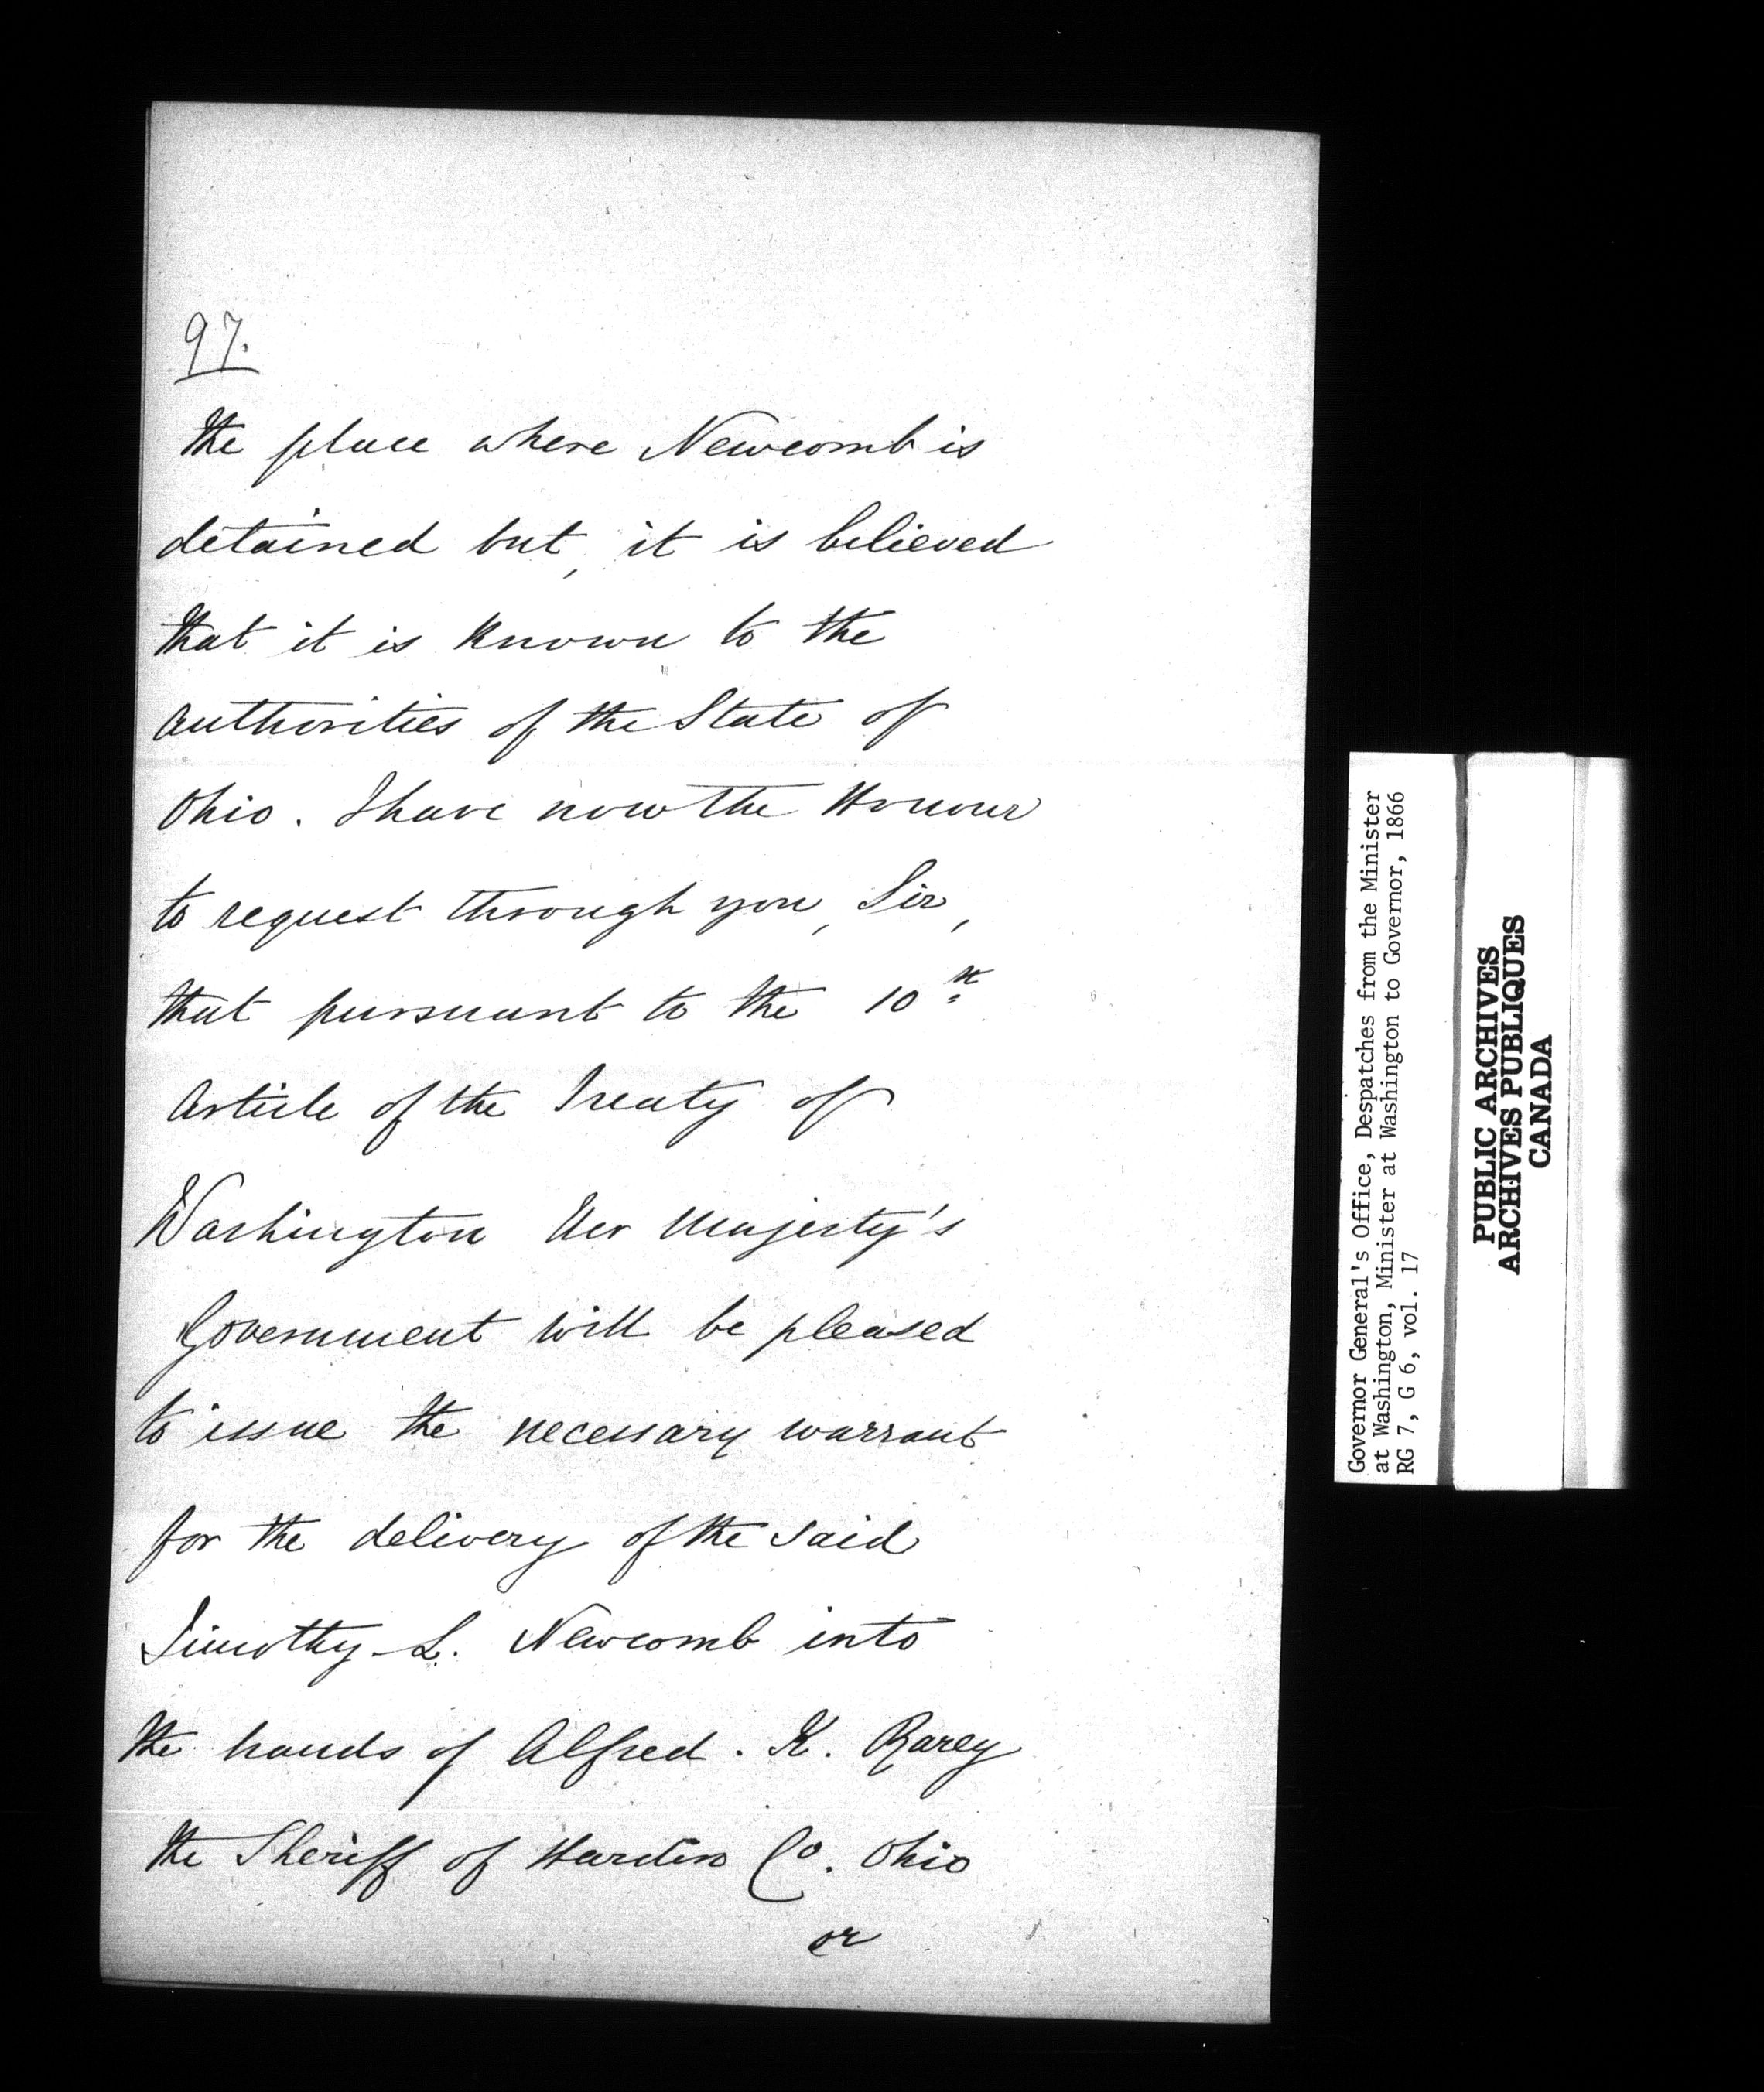 97.
the place where Newcomb is
detained but, it is believed
that it is known to the
authorities of the State of
Ohio. I have now the Honour
to request through you, Sir,
that pursuant to the 10th
Article of the Treaty of
Washington Her Majesty's
Government will be pleased
to issue the necessary warrant
for the delivery of the said
Timothy L. Newcomb into
the hands of Alfred. K. Rarey
the Sheriff of Hardin Co. Ohio
or
Governor General's Office, Despatches from the Minister
at Washington, Minister at Washington to Governor, 1866
RG 7, G 6, vol. 17
PUBLIC ARCHIVES
ARCHIVES PUBLIQUES
CANADA